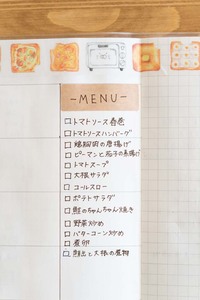 -MENU-
□トマトソース春巻
□トマトソースハンバーグ
□鶏胸肉の唐揚げ
□ピーマンと茄子の素揚げ
□トマトスープ
□大根サラダ
□コールスロー
□ポテトサラダ
□鮭のちゃんちゃん焼き
□野菜炒め
□バターコーン炒め
□煮卵
□大根の煮物